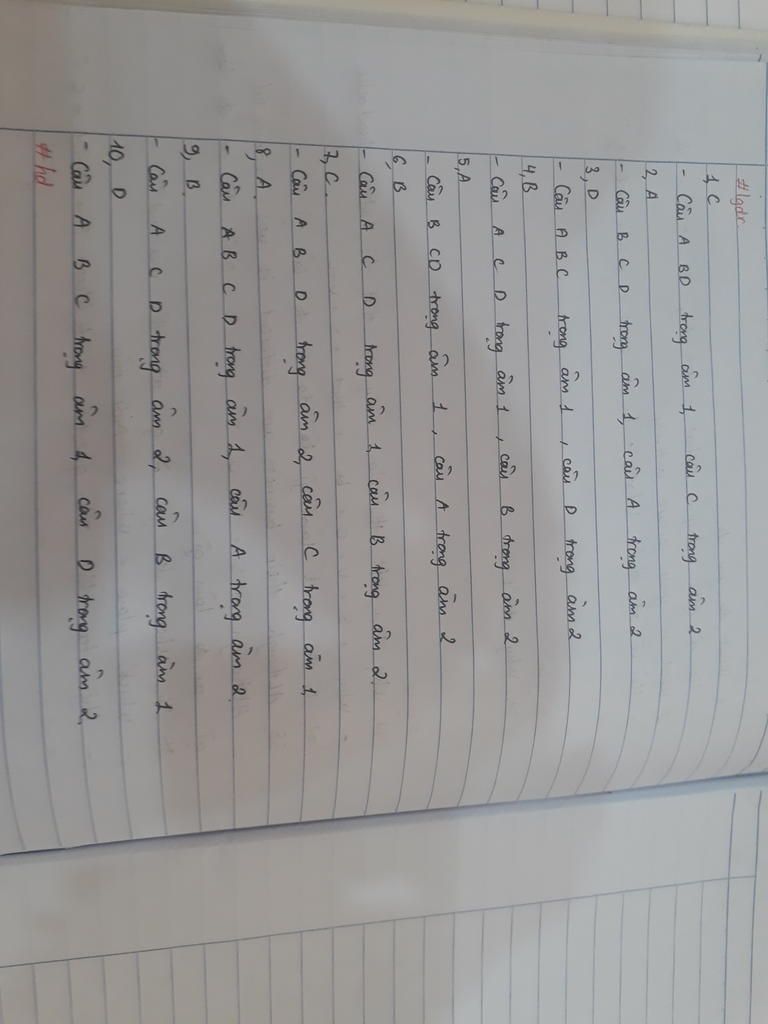 #lgdr
1, C
- Câu A BD trọng âm 1, câu C trọng âm 2
2, A
- Câu B C D trọng âm 1, câu A trọng âm 2
3, D
- Câu A B C trọng âm 1, câu D trọng âm 2
4, B
- Câu A C D trọng âm 1, câu B trọng âm 2
5, A
- Câu B CD trọng âm 1, câu A trọng âm 2
6, B
- Câu A C D trọng âm 1, câu B trọng âm 2.
7, C.
- Câu A B D trọng âm 2, câu C trọng âm 1,
8, A.
- Câu A B C D trọng âm 1, câu A trọng âm 2.
9, B.
- Câu A C D trọng âm 2, câu B trọng âm 1
10, D
- Câu A B C trọng âm 1, câu D trọng âm 2.
#hd